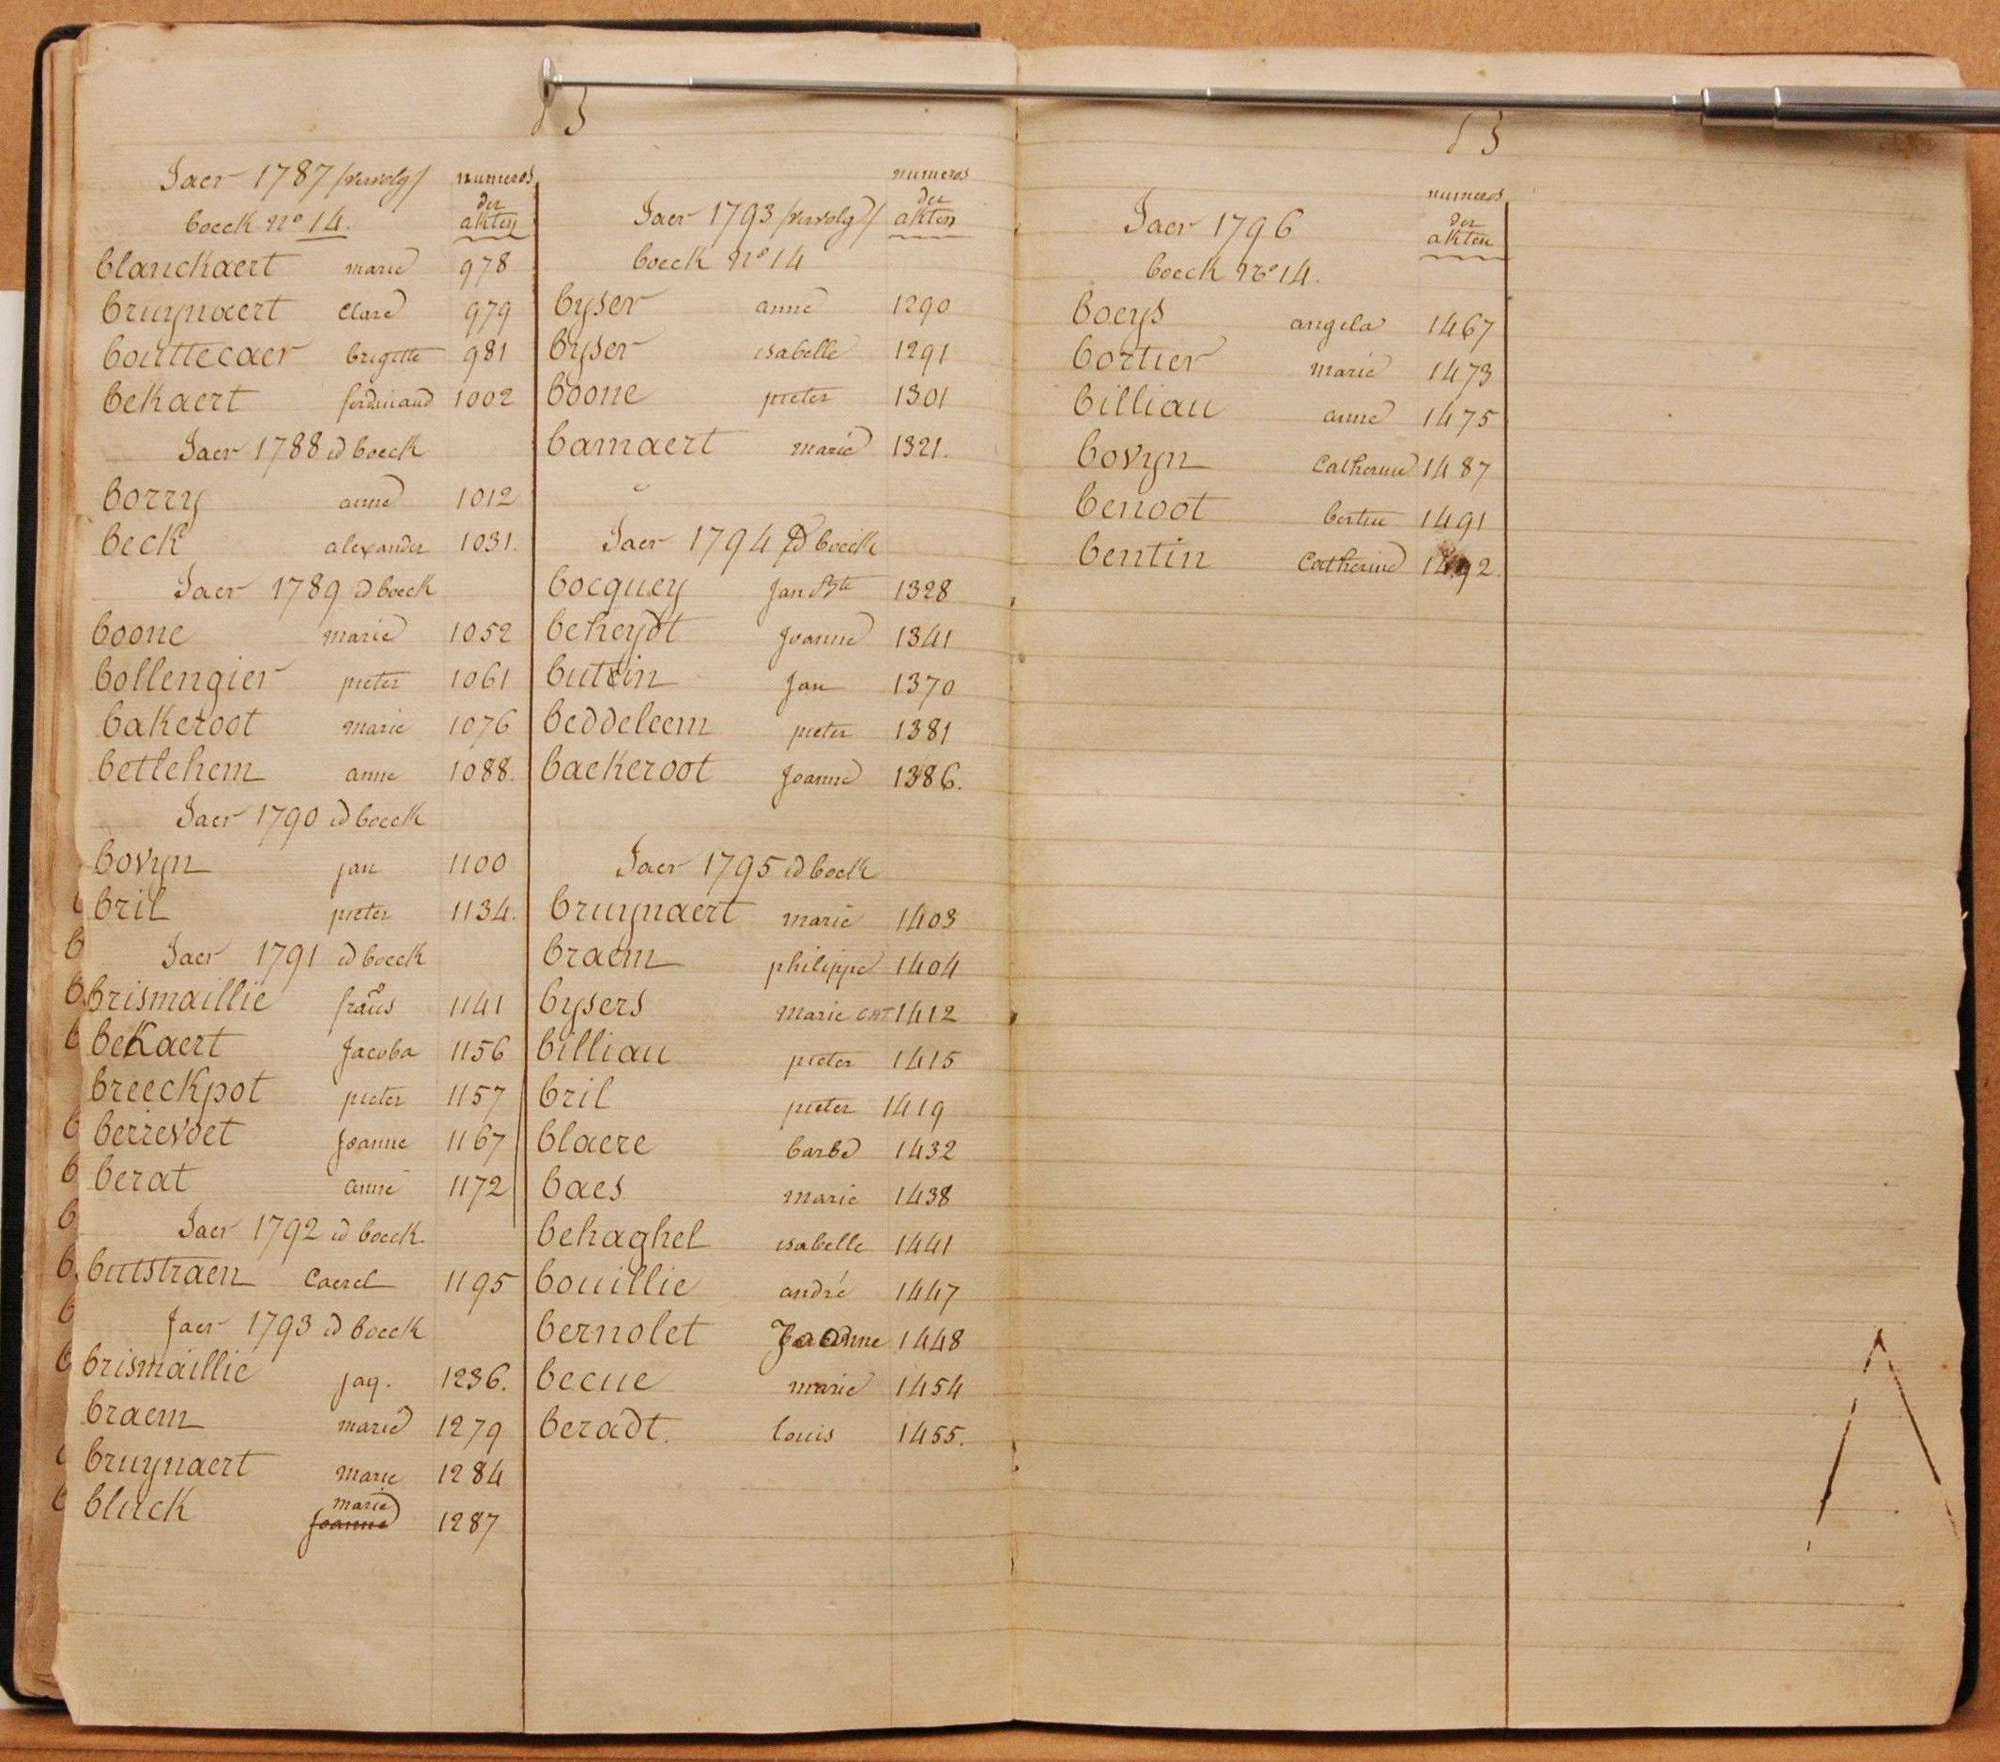 B
Jaer 1787 /vervolg/ numeros
boeck N° 14. der akten
blanckaert marie 978
bruynaert Clare 979
bouttecaer brigitte 981
bekaert ferdinand 1002
Jaer 1788 id boeck
borry anne 1012
beck alexander 1031.
Jaer 1789 id boeck
boone marie 1052
bollengier pieter 1061
bakeroot marie 1076
betlehem anne 1088.
Jaer 1790 id boeck
bovyn jan 1100
bril pieter 1134.
Jaer 1791 id boeck
brismaillie fraus 1141
bekaert Jacoba 1156
breeckpot pieter 1157
berrevoet Joanne 1167
berat anne 1172
Jaer 1792 id boeck.
butstraen Caerel 1195
Jaer 1793 id boeck
brismaillie jaq. 1236.
braem marie 1279
bruynaert marie 1284
marie
bluck Joanne 1287
numeros
der
Jaer 1793 /vervolg/ akten
boeck N° 14
byser anne 1290
byser isabelle 1291
boone pieter 1301
bamaert marie 1321.
Jaer 1794 id boeck
bocquey Jan Bte 1328
beheydt Joanne 1341
butein Jan 1370
beddeleem pieter 1381
baekeroot Joanne 1386.
Jaer 1795 id boeck
bruynaert marie 1403
braem philippe 1404
bysers marie CAT 1412
billiau pieter 1415
bril pieter 1419
blaere barbe 1432
baes marie 1438
behaghel isabelle 1441
bouillie andré 1447
bernolet Joanne 1448
becue marie 1454
beradt. louis 1455.
B
numeros
der
Jaer 1796 akten
boeck N° 14.
boeys angela 1467
bortier marie 1473
billiau anne 1475
bovyn Catherine 1487
benoot bertin 1491
bentin Catherine 1492.